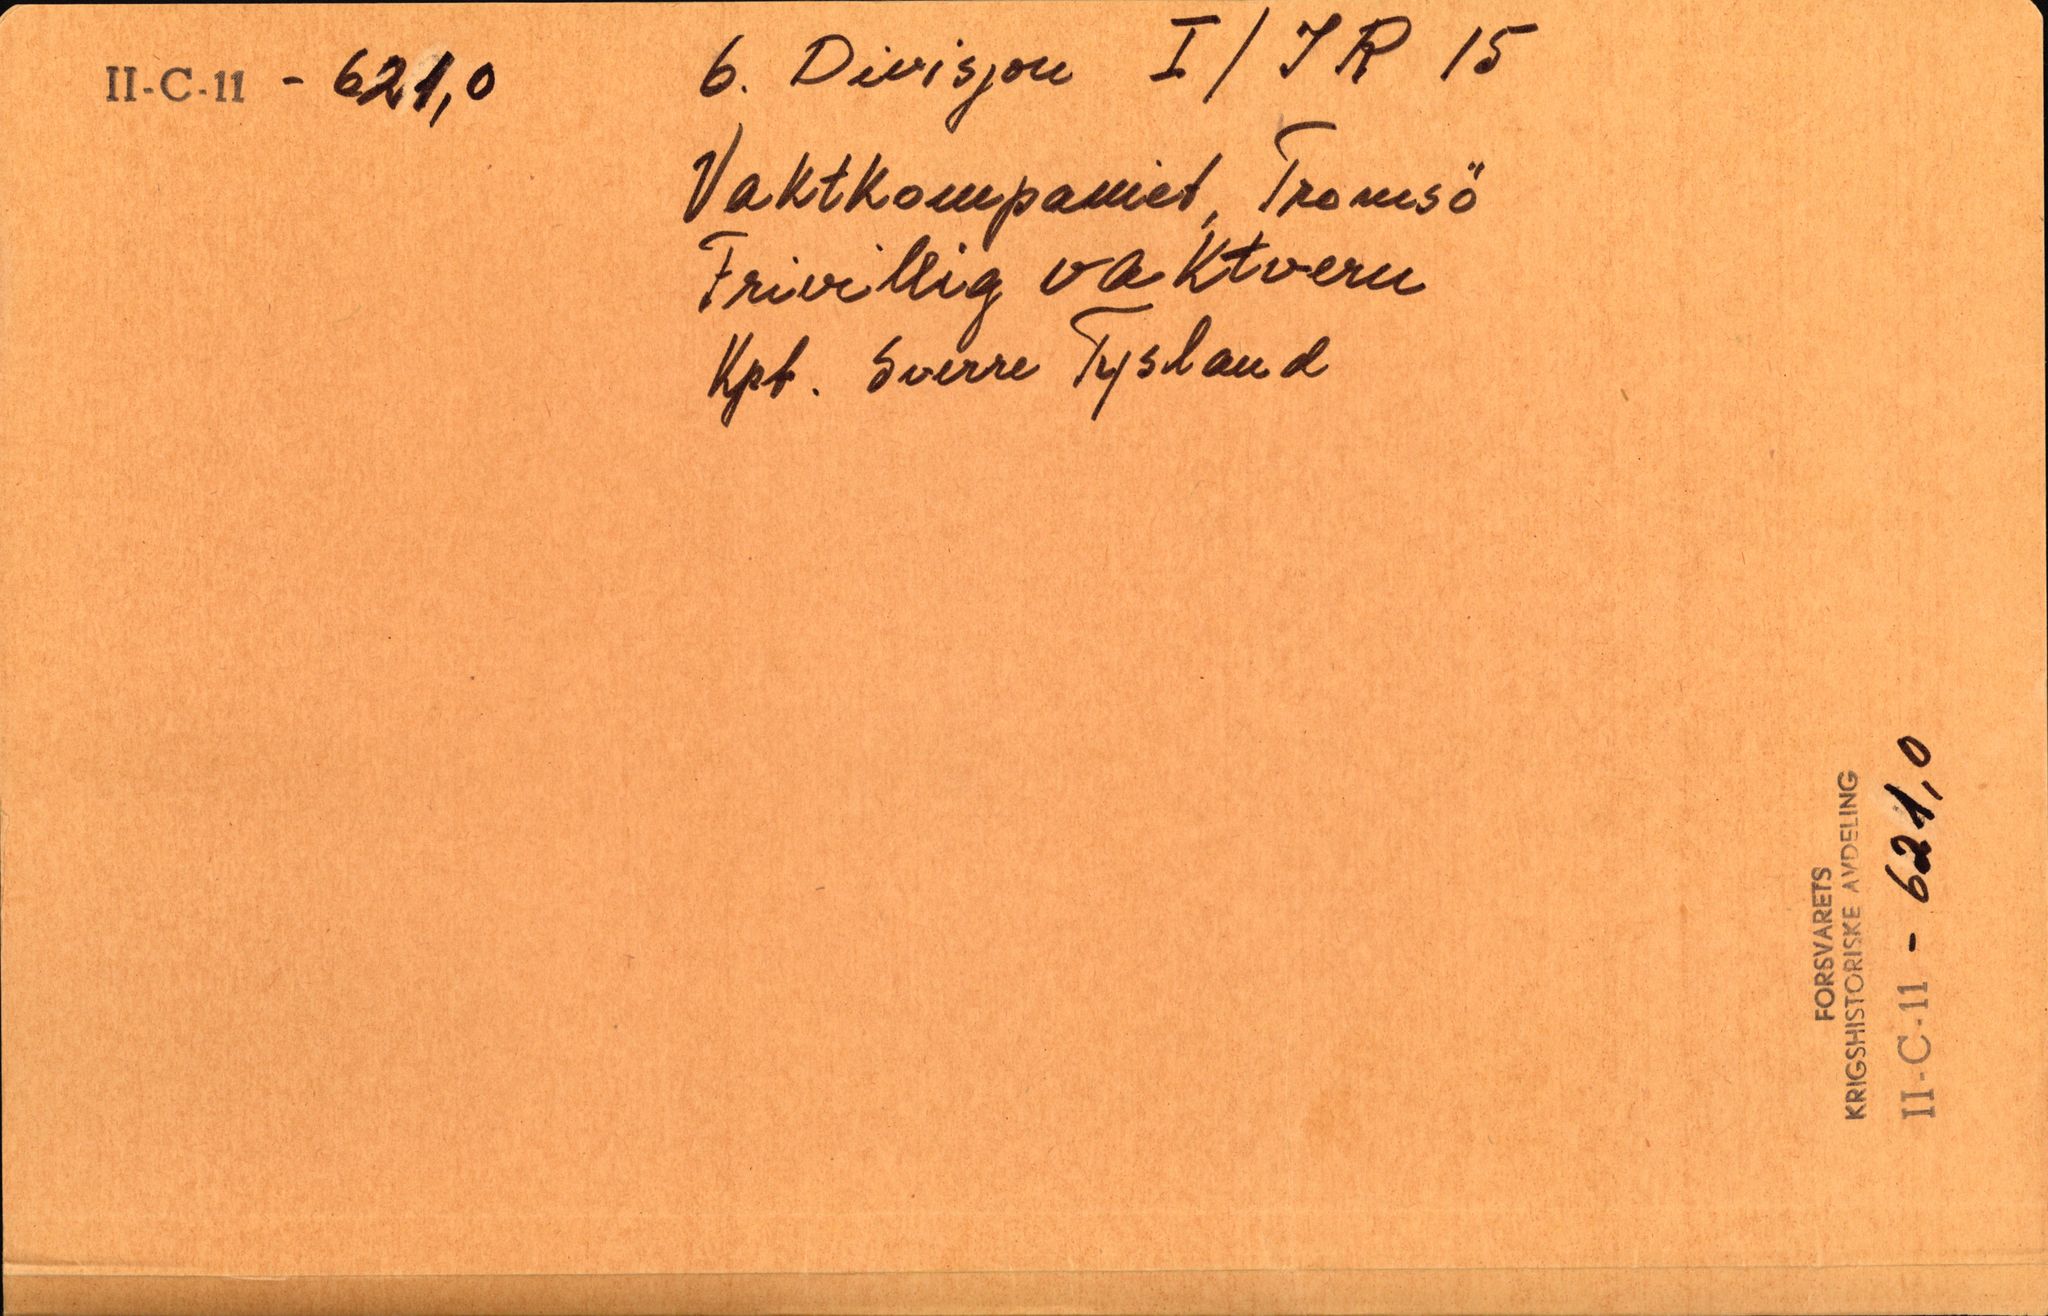 II-C-11 - 621,0
6. Divisjon I/IR 15
Vaktkompaniet, Tromsö
Frivillig vaktvern
Kpt. Sverre Tysland
FORSVARETS
KRIGSHISTORISKE AVDELING
II-C-11 - 621,0